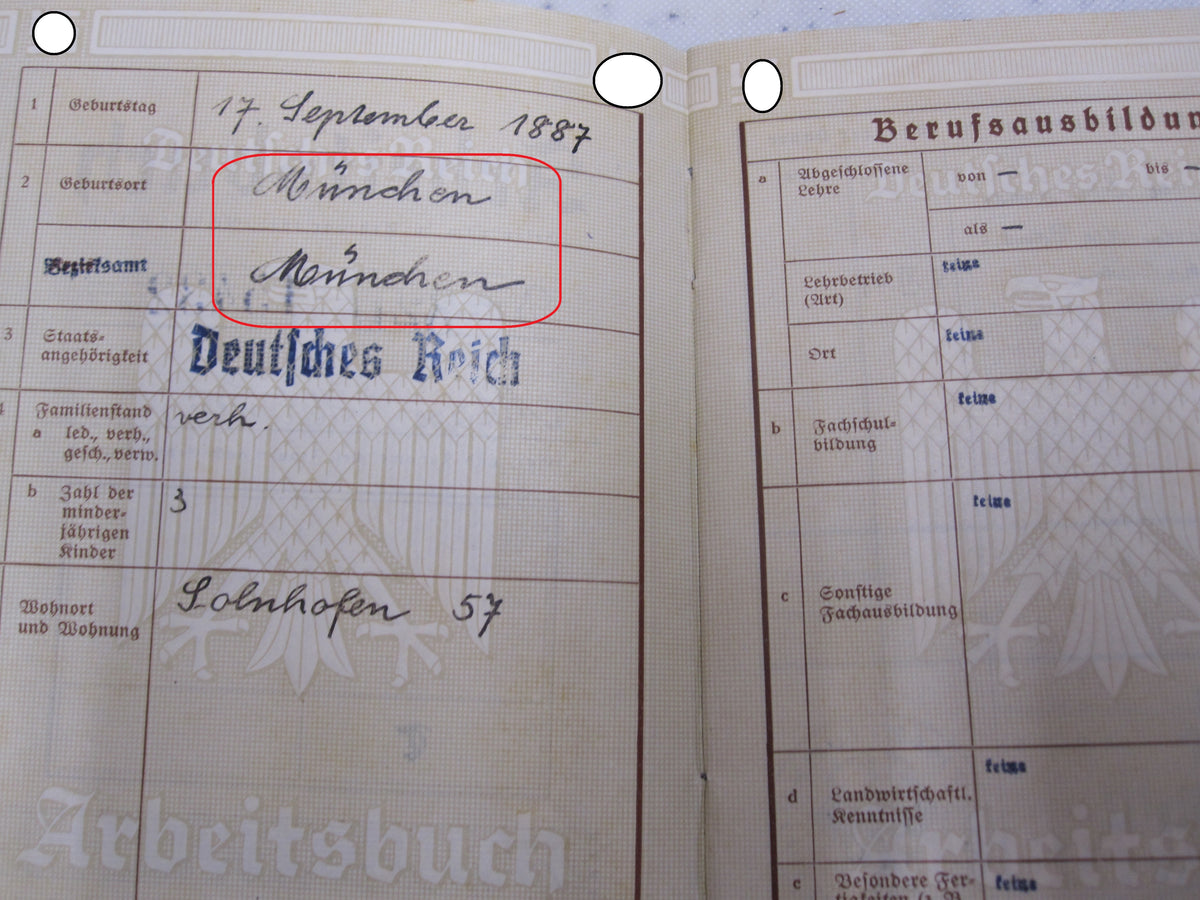 1 Geburtstag 17. September 1887
2 Geburtsort München
Bezirksamt München
3 Staats-
angehörigkeit Deutsches Reich
4 Familienstand verh.
a led., verh.,
gesch., verw.
b Zahl der 3
minder-
jährigen
Kinder
Wohnort Solnhofen 57
und Wohnung
Deutsches Reich
Arbeitsbuch
Berufsausbildun
a Abgeschlossene von — bis —
Lehre
als —
Lehrbetrieb keine
(Art)
Ort keine
b Fachschul- keine
bildung
c Sonstige keine
Fachausbildung
d Landwirtschaftl. keine
Kenntnisse
e Besondere Fer- keine
tigkeiten (z. B.
Deutsches Rei
Arbeits